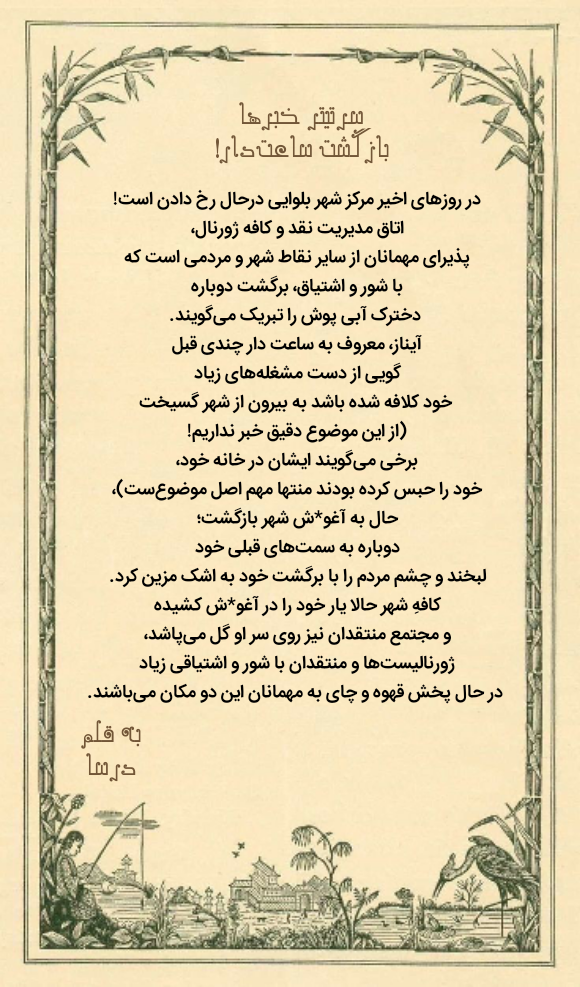 سرتیتر خبرها
بازگشت ساعت‌دار!
در روزهای اخیر مرکز شهر بلوایی درحال رخ دادن است!
اتاق مدیریت نقد و کافه ژورنال،
پذیرای مهمانان از سایر نقاط شهر و مردمی است که
با شور و اشتیاق، برگشت دوباره
دخترک آبی پوش را تبریک می‌گویند.
آیناز، معروف به ساعت دار چندی قبل
گویی از دست مشغله‌های زیاد
خود کلافه شده باشد به بیرون از شهر گسیخت
(از این موضوع دقیق خبر نداریم!
برخی می‌گویند ایشان در خانه خود،
خود را حبس کرده بودند منتها مهم اصل موضوع‌ست)،
حال به آغو*ش شهر بازگشت؛
دوباره به سمت‌های قبلی خود
لبخند و چشم مردم را با برگشت خود به اشک مزین کرد.
کافهِ شهر حالا یار خود را در آغو*ش کشیده
و مجتمع منتقدان نیز روی سر او گل می‌پاشد،
ژورنالیست‌ها و منتقدان با شور و اشتیاقی زیاد
در حال پخش قهوه و چای به مهمانان این دو مکان می‌باشند.
به قلم
درسا